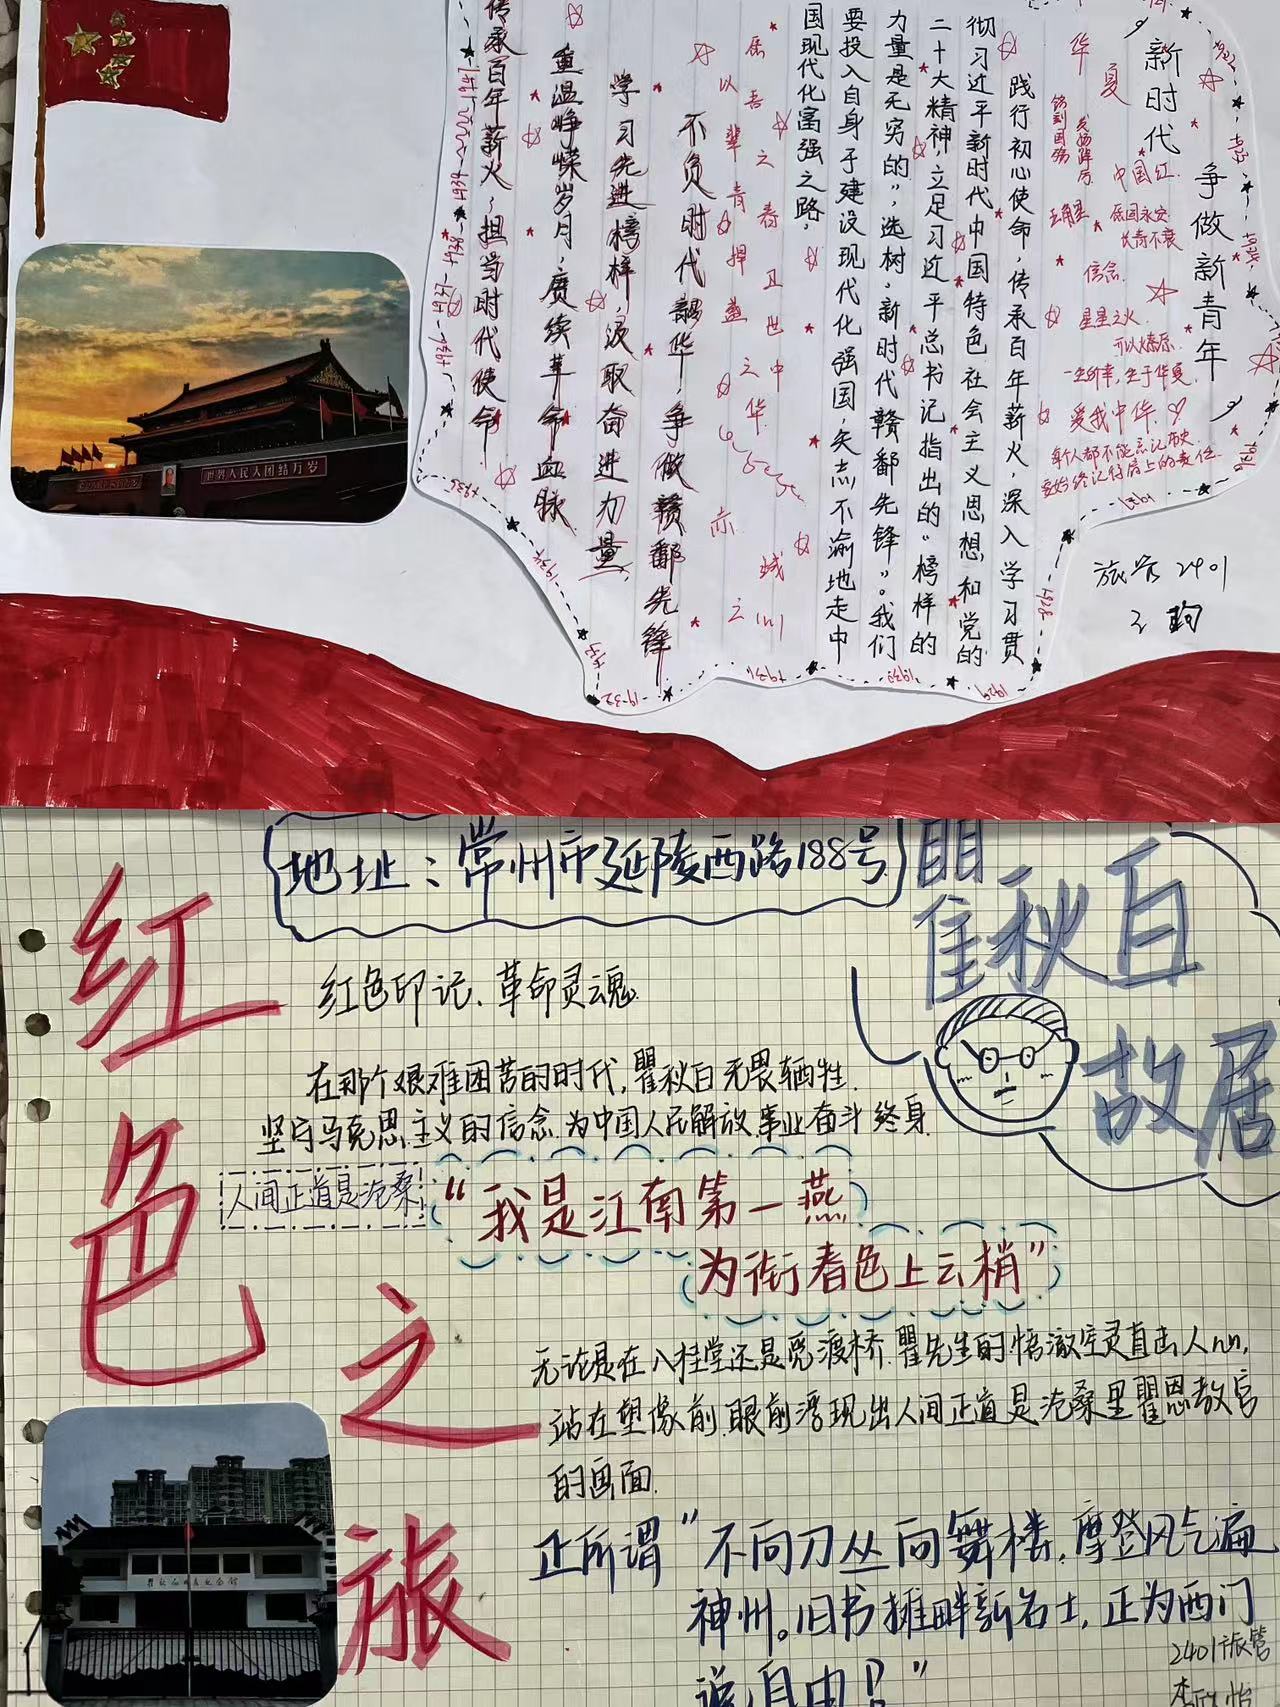 新时代 争做新青年
华夏
中国红
信念
星星之火
可以燎原
一生所幸，生于华夏
爱我中华
每个人都不能忘记历史
要始终记得肩上的责任
践行初心使命，传承百年薪火，深入学习贯
彻习近平新时代中国特色社会主义思想和党的
二十大精神，立足习近平总书记指出的“榜样的
力量是无穷的”，选树，新时代赣鄱先锋”。我们
要投入自身于建设现代化强国，矢志不渝地走中
国现代化富强之路，
以吾辈之青春
捍盛世之中华
不负时代韶华，争做赣鄱先锋
学习先进榜样，汲取奋进力量
重温峥嵘岁月，赓续革命血脉
传承百年薪火，担当时代使命
世界人民大团结万岁
旅管2401
王玥
地址：常州市延陵西路188号
瞿秋白
故居
红色之旅
红色印记、革命灵魂
在那个艰难困苦的时代，瞿秋白无畏牺牲，
坚守马克思主义的信念，为中国人民解放事业奋斗终身
人间正道是沧桑
“我是江南第一燕
为衔春色上云梢”
无论是在八桂堂还是觅渡桥，瞿先生的悟澈空灵直击人心，
站在塑像前，眼前浮现出人间正道是沧桑里瞿恩教官
的画面
正所谓“不向刀丛向舞楼，摩登风气遍
神州。旧书摊畔新名士，正为西门
说自由！”
2401旅管
李欣怡